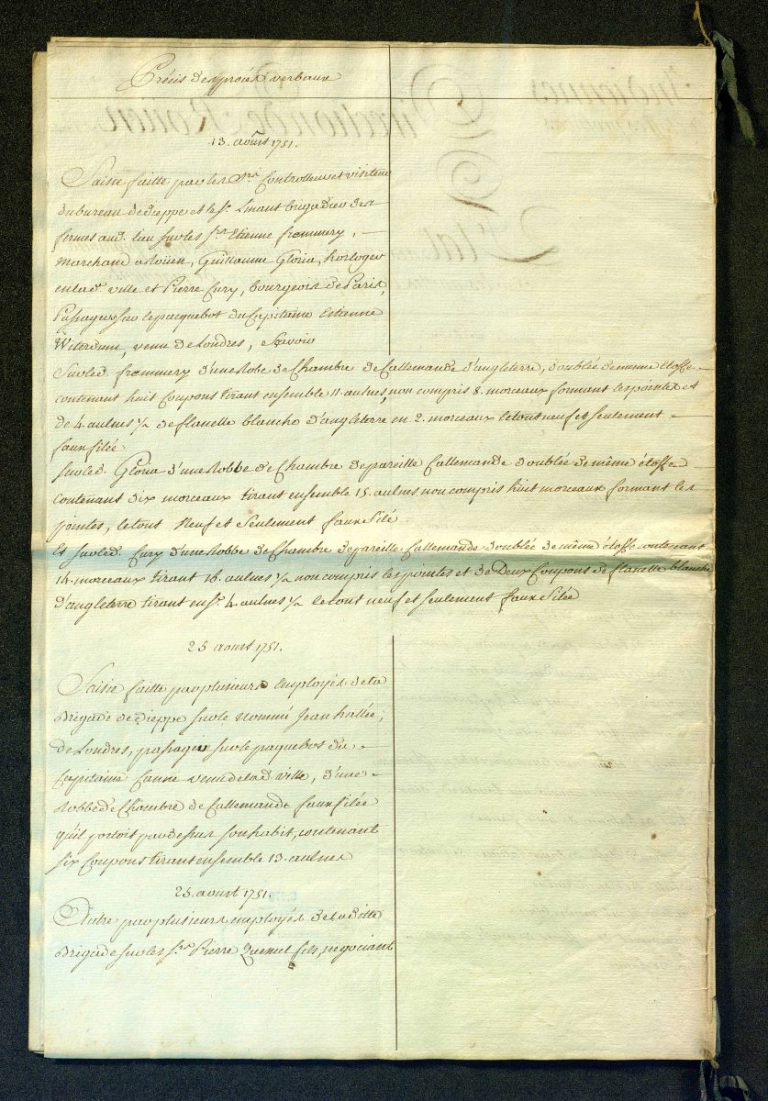 Précis des procès verbaux
13. aoust 1751.
Saisie faitte par les Srs. Controlleur et visiteur
du bureau de dieppe et le Sr. Linant brigadier des
fermes aud. lieu sur les Srs. Etienne frommery,
marchand a Rouen, Guillaume Gloria, horloger
en lad. ville et Pierre Cury, bourgeois de Paris,
Passagers sur le pacquebot du Capitaine Etienne
venu de Londres, Sçavoir
Sur led. frommery d'une Robe de Chambre de Callemande d'angleterre, doublée de meme étoffe
contenant huit Coupons tirant ensemble 11. aulnes, non compris 8. morceaux formant les pointes et
de 4 aulnes 1/2 de flanelle blanche d'angleterre en 2. morceaux le tout neuf et seulement
faux filée.
Sur led. Gloria d'une Robbe de Chambre de pareille Callemande doublée de même étoffe
contenant dix morceaux tirant ensemble 15. aulnes non compris huit morceaux formant les
pointes, le tout Neuf et Seulement faux filé.
Et sur led. Cury d'une Robbe de Chambre de pareille Callemande doublée de même étoffe contenant
14. morceaux tirant 16. aulnes 1/2 non compris les pointes et de Deux Coupons de flanelle blanche
d'angleterre tirant ense. 4 aulnes 1/2 le tout neuf et seulement faux filée
25 aoust 1751.
Saisie faitte par plusieurs Employés de la
Brigade de Dieppe sur le Nommé Jean hallée,
de Londres, passager sur le paquebot du
Capitaine venu de lad. ville, d'une
Robbe de Chambre de Callemande faux filée
qu'il portoit par dessus son habit, contenant
six Coupons tirant ensemble 13. aulnes
25. aoust 1751.
Autre par plusieurs employés de la ditte
Brigade sur les Srs. Pierre Quesnel fils, negociant